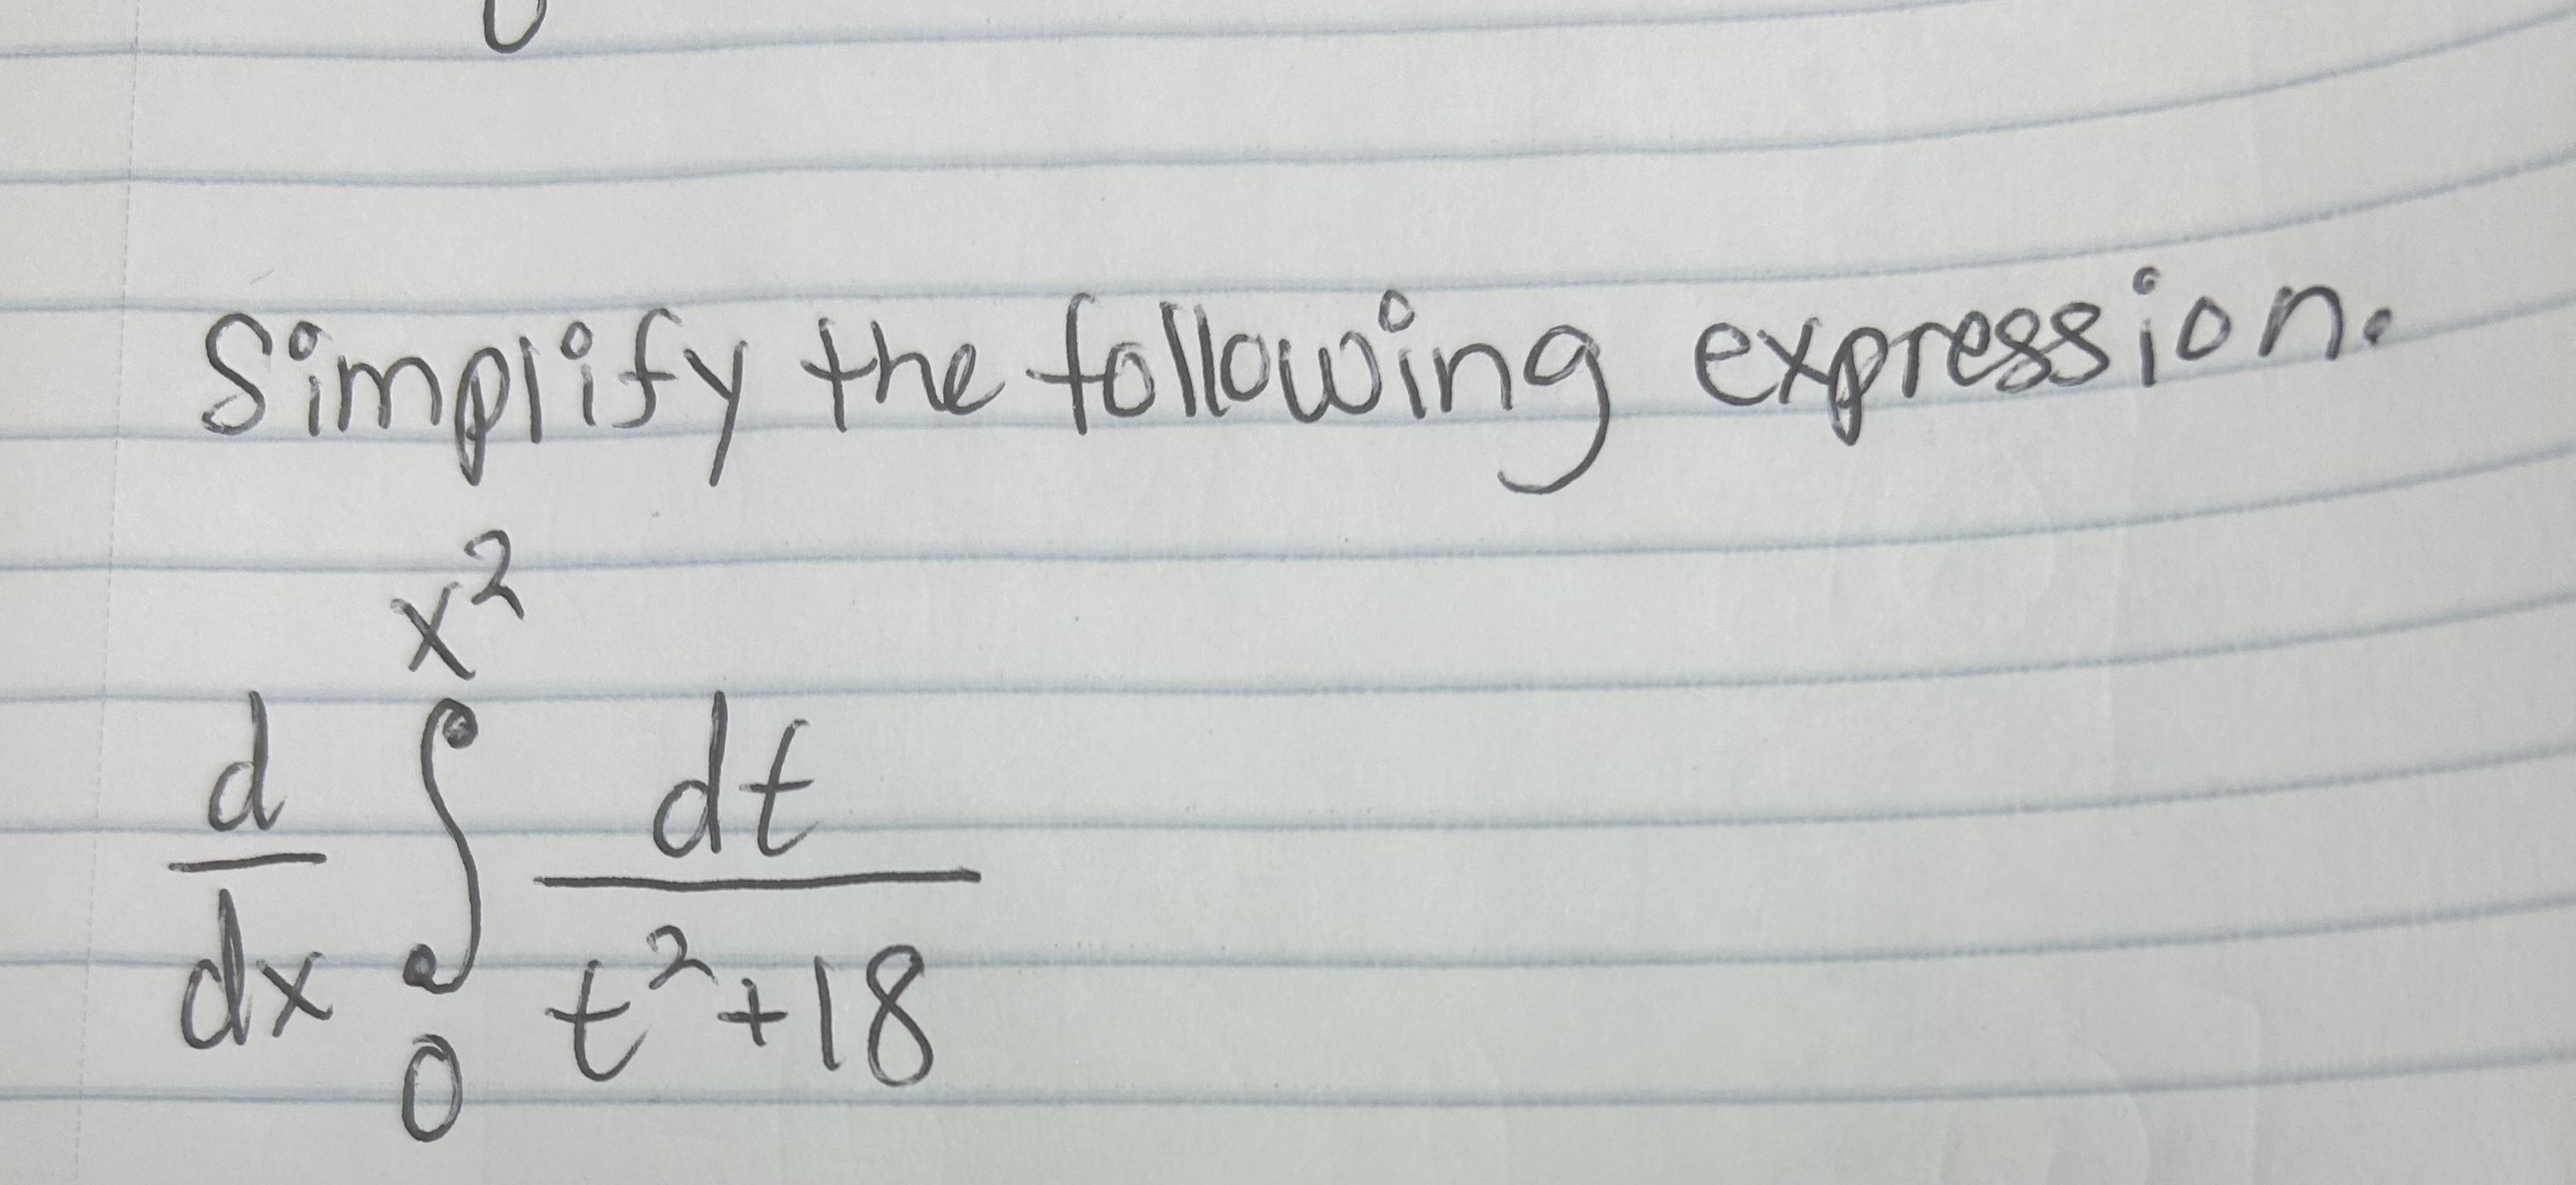 Simplify the following expression.
d/dx ∫₀^(x²) dt/(t²+18)